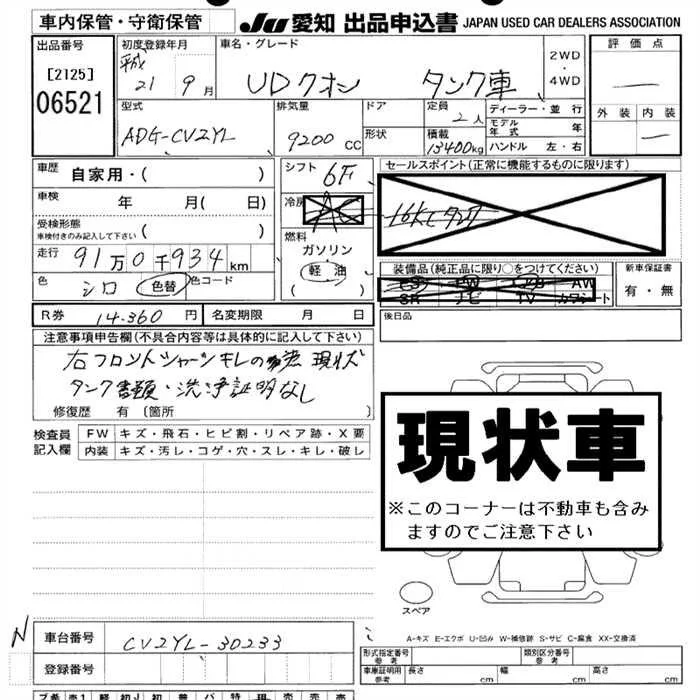 車内保管・守衛保管 JU 愛知 出品申込書 JAPAN USED CAR DEALERS ASSOCIATION
出品番号 初度登録年月 車名・グレード 2WD・4WD 評価点
[2125] 平成 21 9月 UDクオン タンク車 ―
06521 型式 排気量 ドア 定員 ディーラー・並行 外装 内装
ADG-CV2YL 9200cc 形状 2人 モデル年式 年 ―
積載 13400kg ハンドル 左・右
車歴 自家用・( ) シフト 6F セールスポイント(正常に機能するものに限ります)
車検 年 月( 日) 冷房 AC
受検形態 ( ) 燃料
車検付きのみ記入して下さい
走行 91万0千934km ガソリン 装備品(純正品に限り○をつけてください) 新車保証書
色 シロ 色替 色コード ( 軽油 ) PW AW 有・無
SR ナビ TV カワシート
R券 14-360円 名変期限 月 日 後日品
注意事項申告欄(不具合内容等は具体的に記入して下さい)
右フロントシャーシキレの為 現状
タンク書類・洗浄証明なし
修復歴 有〔箇所 〕
現状車
検査員 FW キズ・飛石・ヒビ割・リペア跡・X要
記入欄 内装 キズ・汚レ・コゲ・穴・スレ・キレ・破レ
※このコーナーは不動車も含み
ますのでご注意下さい
スペア
A-キズ E-エクボ U-凹み W-補修跡 S-サビ C-腐食 XX-交換済
N 車台番号 CV2YL-30233 型式指定番号 参考 類別区分番号 参考
登録番号 車庫証明用 参考 長さ cm 幅 cm 高さ cm